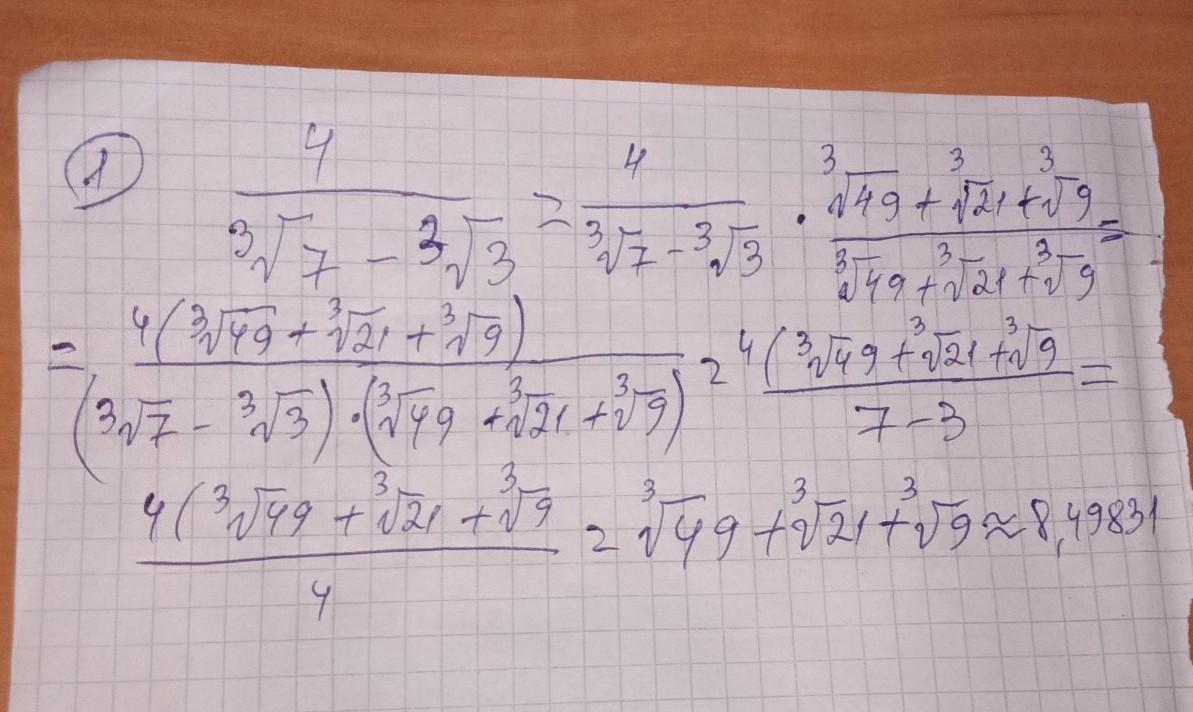 ① 4/(³√7 - ³√3) = 4/(³√7 - ³√3) · (³√49 + ³√21 + ³√9)/(³√49 + ³√21 + ³√9) =
= 4(³√49 + ³√21 + ³√9)/((³√7 - ³√3) · (³√49 + ³√21 + ³√9)) = 4(³√49 + ³√21 + ³√9/(7 - 3) =
4(³√49 + ³√21 + ³√9/4 = ³√49 + ³√21 + ³√9 ≈ 8,49831